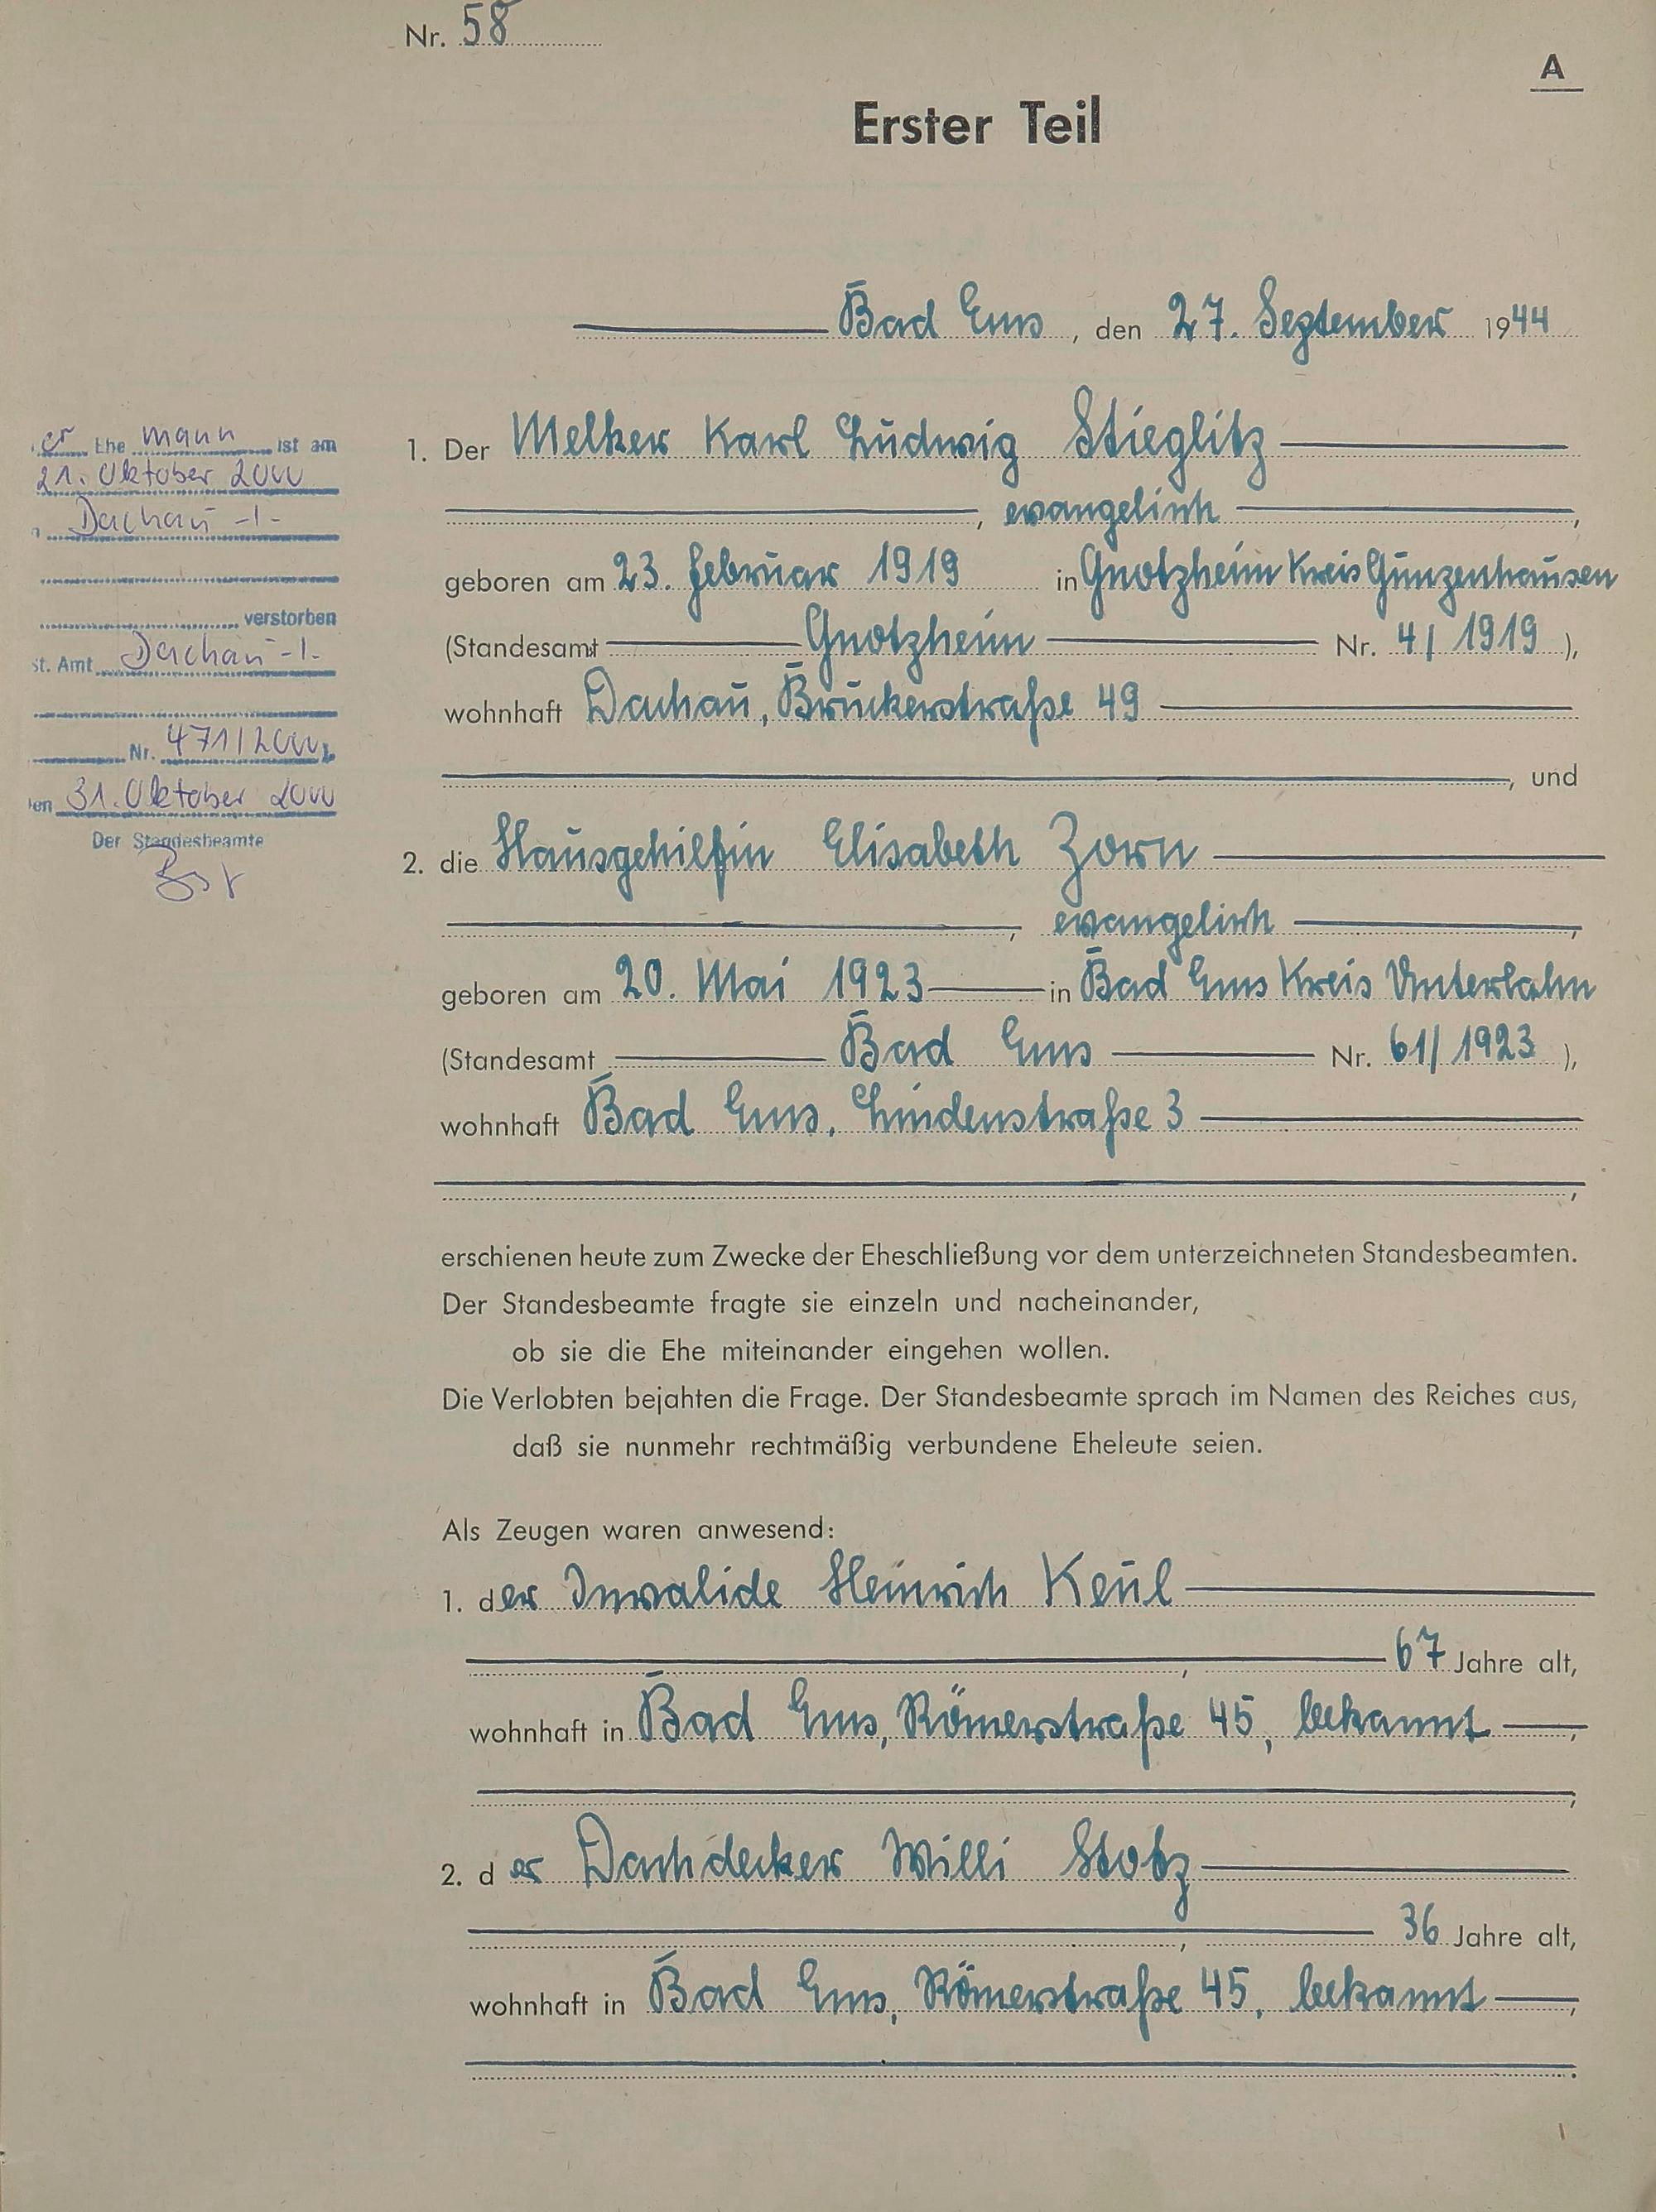 Nr. 58
A
Erster Teil
Bad Ems, den 27. September 1944
er Ehe mann ist am
21. Oktober 2000
Dachau -I-
verstorben
st. Amt Dachau -I-
Nr. 471/2000
en 31. Oktober 2000
Der Standesbeamte
1. Der Melker Karl Ludwig Stieglitz
, evangelisch,
geboren am 23. Februar 1919 in Gnotzheim Kreis Gunzenhausen
(Standesamt Gnotzheim Nr. 4/1919),
wohnhaft Dachau, Bruckerstraße 49
, und
2. die Hausgehilfin Elisabeth Zorn
, evangelisch,
geboren am 20. Mai 1923 in Bad Ems Kreis Unterlahn
(Standesamt Bad Ems Nr. 61/1923),
wohnhaft Bad Ems, Lindenstraße 3
,
erschienen heute zum Zwecke der Eheschließung vor dem unterzeichneten Standesbeamten.
Der Standesbeamte fragte sie einzeln und nacheinander,
ob sie die Ehe miteinander eingehen wollen.
Die Verlobten bejahten die Frage. Der Standesbeamte sprach im Namen des Reiches aus,
daß sie nunmehr rechtmäßig verbundene Eheleute seien.
Als Zeugen waren anwesend:
1. der Invalide Heinrich Keul
, 67 Jahre alt,
wohnhaft in Bad Ems, Römerstraße 45, bekannt,
,
2. der Dachdecker Willi Stotz
, 36 Jahre alt,
wohnhaft in Bad Ems, Römerstraße 45, bekannt,
.